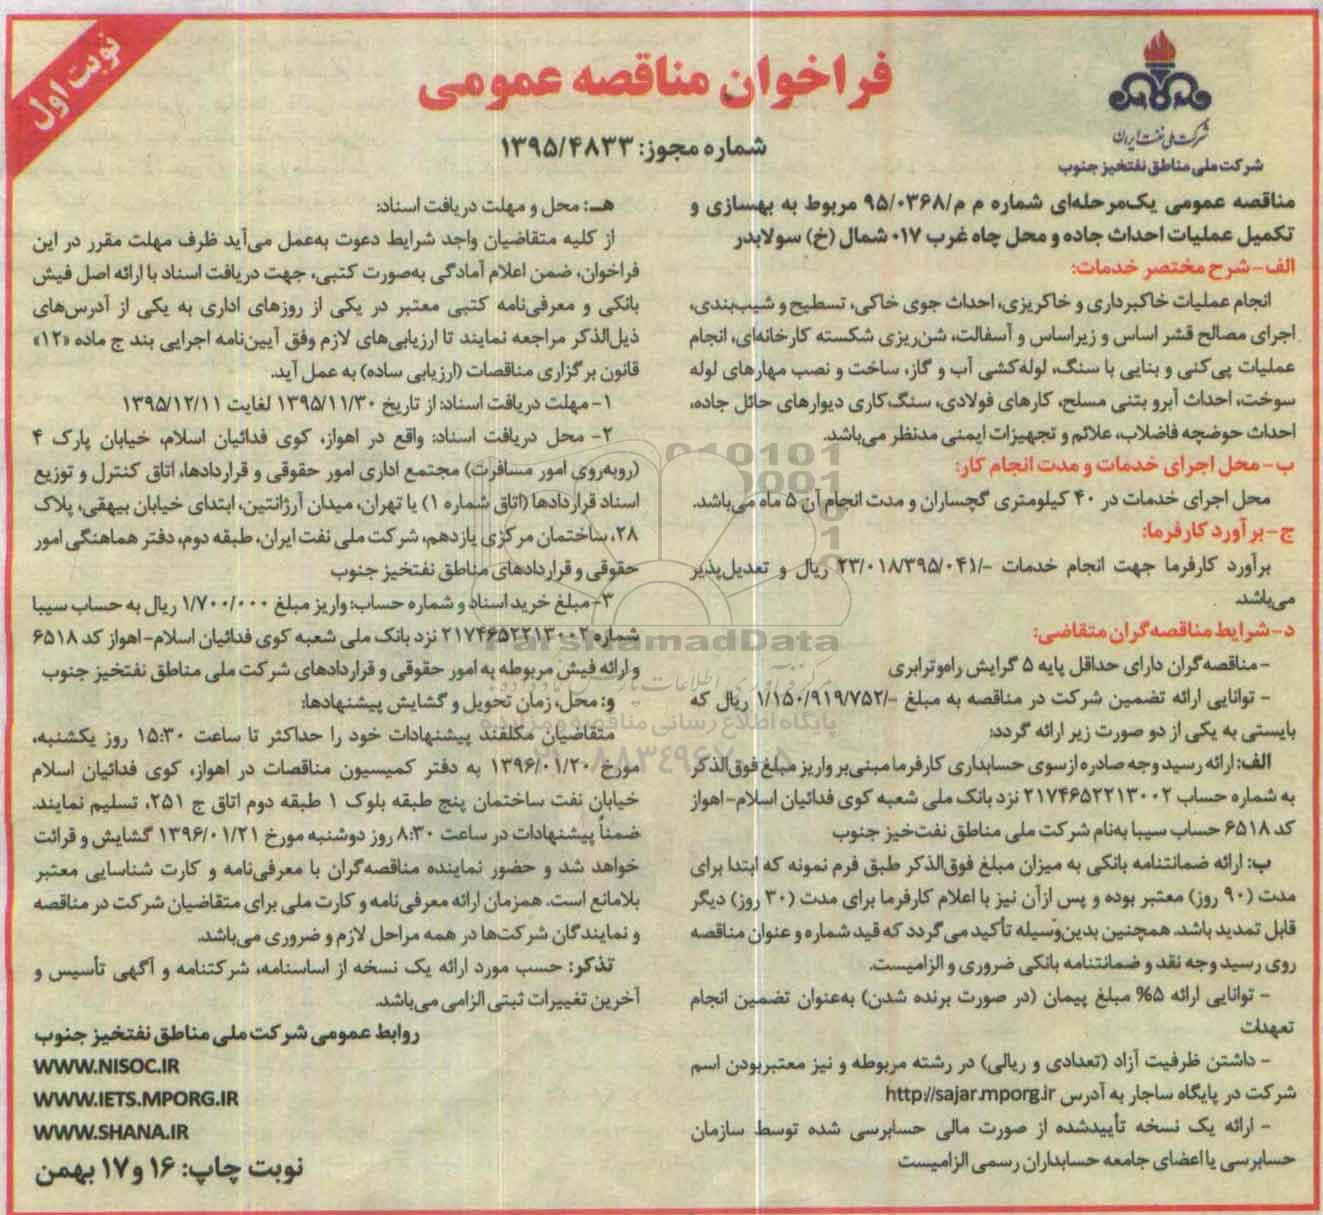 نوبت اول
فراخوان مناقصه عمومی
شماره مجوز: ۱۳۹۵/۴۸۳۳
شرکت ملی نفت ایران
شرکت ملی مناطق نفتخیز جنوب
مناقصه عمومی یک‌مرحله‌ای شماره م م/۹۵/۰۳۶۸ مربوط به بهسازی و
تکمیل عملیات احداث جاده و محل چاه غرب ۰۱۷ شمال (خ) سولابدر
الف- شرح مختصر خدمات:
انجام عملیات خاکبرداری و خاکریزی، احداث جوی خاکی، تسطیح و شیب‌بندی،
اجرای مصالح قشر اساس و زیراساس و آسفالت، شن‌ریزی شکسته کارخانه‌ای، انجام
عملیات پی‌کنی و بنایی با سنگ، لوله‌کشی آب و گاز، ساخت و نصب مهارهای لوله
سوخت، احداث آبرو بتنی مسلح، کارهای فولادی، سنگ‌کاری دیوارهای حائل جاده،
احداث حوضچه فاضلاب، علائم و تجهیزات ایمنی مدنظر می‌باشد.
ب- محل اجرای خدمات و مدت انجام کار:
محل اجرای خدمات در ۴۰ کیلومتری گچساران و مدت انجام آن ۵ ماه می‌باشد.
ج- برآورد کارفرما:
برآورد کارفرما جهت انجام خدمات -/۲۳/۰۱۸/۳۹۵/۰۴۱ ریال و تعدیل‌پذیر
می‌باشد.
د- شرایط مناقصه‌گران متقاضی:
- مناقصه‌گران دارای حداقل پایه ۵ گرایش راه‌وترابری
- توانایی ارائه تضمین شرکت در مناقصه به مبلغ -/۱/۱۵۰/۹۱۹/۷۵۲ ریال که
بایستی به یکی از دو صورت زیر ارائه گردد:
الف: ارائه رسید وجه صادره ازسوی حسابداری کارفرما مبنی‌بر واریز مبلغ فوق‌الذکر
به شماره حساب ۲۱۷۴۶۵۲۲۱۳۰۰۲ نزد بانک ملی شعبه کوی فدائیان اسلام-اهواز
کد ۶۵۱۸ حساب سیبا به‌نام شرکت ملی مناطق نفت‌خیز جنوب
ب: ارائه ضمانتنامه بانکی به میزان مبلغ فوق‌الذکر طبق فرم نمونه که ابتدا برای
مدت (۹۰ روز) معتبر بوده و پس ازآن نیز با اعلام کارفرما برای مدت (۳۰ روز) دیگر
قابل تمدید باشد. همچنین بدین‌وسیله تأکید می‌گردد که قید شماره و عنوان مناقصه
روی رسید وجه نقد و ضمانتنامه بانکی ضروری و الزامیست.
- توانایی ارائه ۵% مبلغ پیمان (در صورت برنده شدن) به‌عنوان تضمین انجام
تعهدات
- داشتن ظرفیت آزاد (تعدادی و ریالی) در رشته مربوطه و نیز معتبربودن اسم
شرکت در پایگاه ساجار به آدرس http://sajar.mporg.ir
- ارائه یک نسخه تأییدشده از صورت مالی حسابرسی شده توسط سازمان
حسابرسی یا اعضای جامعه حسابداران رسمی الزامیست
هـ: محل و مهلت دریافت اسناد:
از کلیه متقاضیان واجد شرایط دعوت به‌عمل می‌آید ظرف مهلت مقرر در این
فراخوان، ضمن اعلام آمادگی به‌صورت کتبی، جهت دریافت اسناد با ارائه اصل فیش
بانکی و معرفی‌نامه کتبی معتبر در یکی از روزهای اداری به یکی از آدرس‌های
ذیل‌الذکر مراجعه نمایند تا ارزیابی‌های لازم وفق آیین‌نامه اجرایی بند ج ماده «۱۲»
قانون برگزاری مناقصات (ارزیابی ساده) به عمل آید.
۱- مهلت دریافت اسناد: از تاریخ ۱۳۹۵/۱۱/۳۰ لغایت ۱۳۹۵/۱۲/۱۱
۲- محل دریافت اسناد: واقع در اهواز، کوی فدائیان اسلام، خیابان پارک ۴
(روبه‌روی امور مسافرت) مجتمع اداری امور حقوقی و قراردادها، اتاق کنترل و توزیع
اسناد قراردادها (اتاق شماره ۱) یا تهران، میدان آرژانتین، ابتدای خیابان بیهقی، پلاک
۲۸، ساختمان مرکزی یازدهم، شرکت ملی نفت ایران، طبقه دوم، دفتر هماهنگی امور
حقوقی و قراردادهای مناطق نفتخیز جنوب
۳- مبلغ خرید اسناد و شماره حساب: واریز مبلغ ۱/۷۰۰/۰۰۰ ریال به حساب سیبا
شماره ۲۱۷۴۶۵۲۲۱۳۰۰۲ نزد بانک ملی شعبه کوی فدائیان اسلام- اهواز کد ۶۵۱۸
و ارائه فیش مربوطه به امور حقوقی و قراردادهای شرکت ملی مناطق نفتخیز جنوب
و: محل، زمان تحویل و گشایش پیشنهادها:
متقاضیان مکلفند پیشنهادات خود را حداکثر تا ساعت ۱۵:۳۰ روز یکشنبه،
مورخ ۱۳۹۶/۰۱/۲۰ به دفتر کمیسیون مناقصات در اهواز، کوی فدائیان اسلام
خیابان نفت ساختمان پنج طبقه بلوک ۱ طبقه دوم اتاق ج ۲۵۱، تسلیم نمایند.
ضمناً پیشنهادات در ساعت ۸:۳۰ روز دوشنبه مورخ ۱۳۹۶/۰۱/۲۱ گشایش و قرائت
خواهد شد و حضور نماینده مناقصه‌گران با معرفی‌نامه و کارت شناسایی معتبر
بلامانع است. همزمان ارائه معرفی‌نامه و کارت ملی برای متقاضیان شرکت در مناقصه
و نمایندگان شرکت‌ها در همه مراحل لازم و ضروری می‌باشد.
تذکر: حسب مورد ارائه یک نسخه از اساسنامه، شرکتنامه و آگهی تأسیس و
آخرین تغییرات ثبتی الزامی می‌باشد.
روابط عمومی شرکت ملی مناطق نفتخیز جنوب
WWW.NISOC.IR
WWW.IETS.MPORG.IR
WWW.SHANA.IR
نوبت چاپ: ۱۶ و ۱۷ بهمن
ParsNamadData
پایگاه اطلاع رسانی مناقصه و مزایده